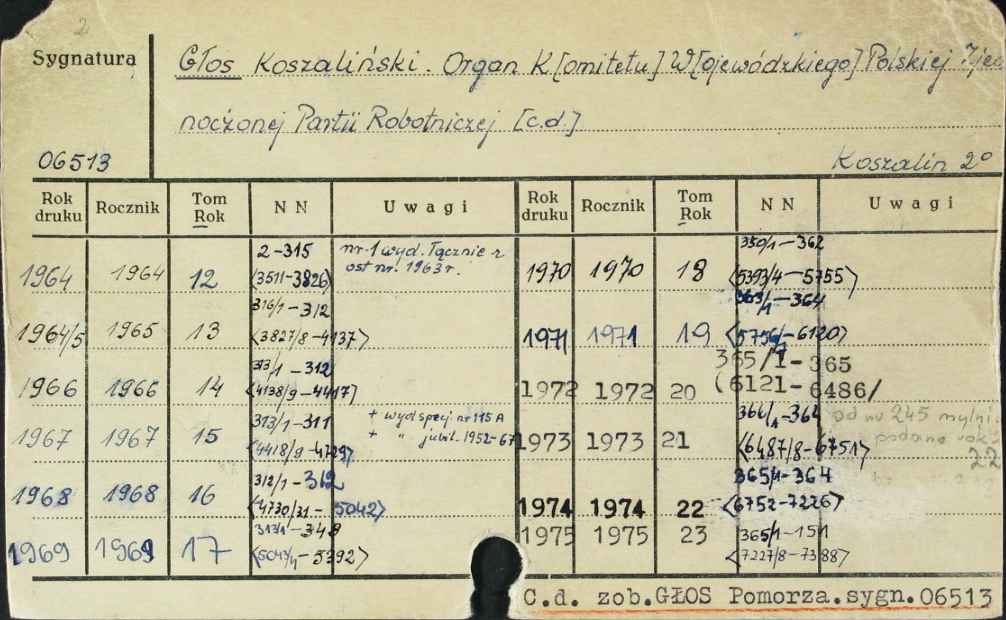 2
Sygnatura
Głos Koszaliński. Organ K[omitetu] W[ojewódzkiego] Polskiej
noczonej Partii Robotniczej [c.d.]
06513
Koszalin 2°
Rok druku Rocznik Tom Rok N N Uwagi Rok druku Rocznik Tom Rok N N Uwagi
1964 1964 12 2-315 nr 1 wyd. łącznie z
(3511-3826) ost nr. 1963 r.
1964/5 1965 13 316/1-312
<3827/8-4137>
1966 1966 14 313/1-312
<4138/9-4417>
1967 1967 15 313/1-311 + wyd specj nr 115 A
<4418/9-4729> + " jubil. 1952-67
1968 1968 16 312/1-312
<4730/31-5042>
1969 1969 17 313/1-348
<5043/4-5392>
1970 1970 18 350/1-362
<5393/4-5755>
1971 1971 19 363/1-364
<5756/7-6120>
1972 1972 20 365/1-365
(6121-6486/
1973 1973 21 366/1-364 od nr 245 mylni
<6487/8-6751> podano rok
22
1974 1974 22 365/1-364
<6752-7226>
1975 1975 23 365/1-151
<7227/8-7388>
C.d. zob.GŁOS Pomorza.sygn.06513